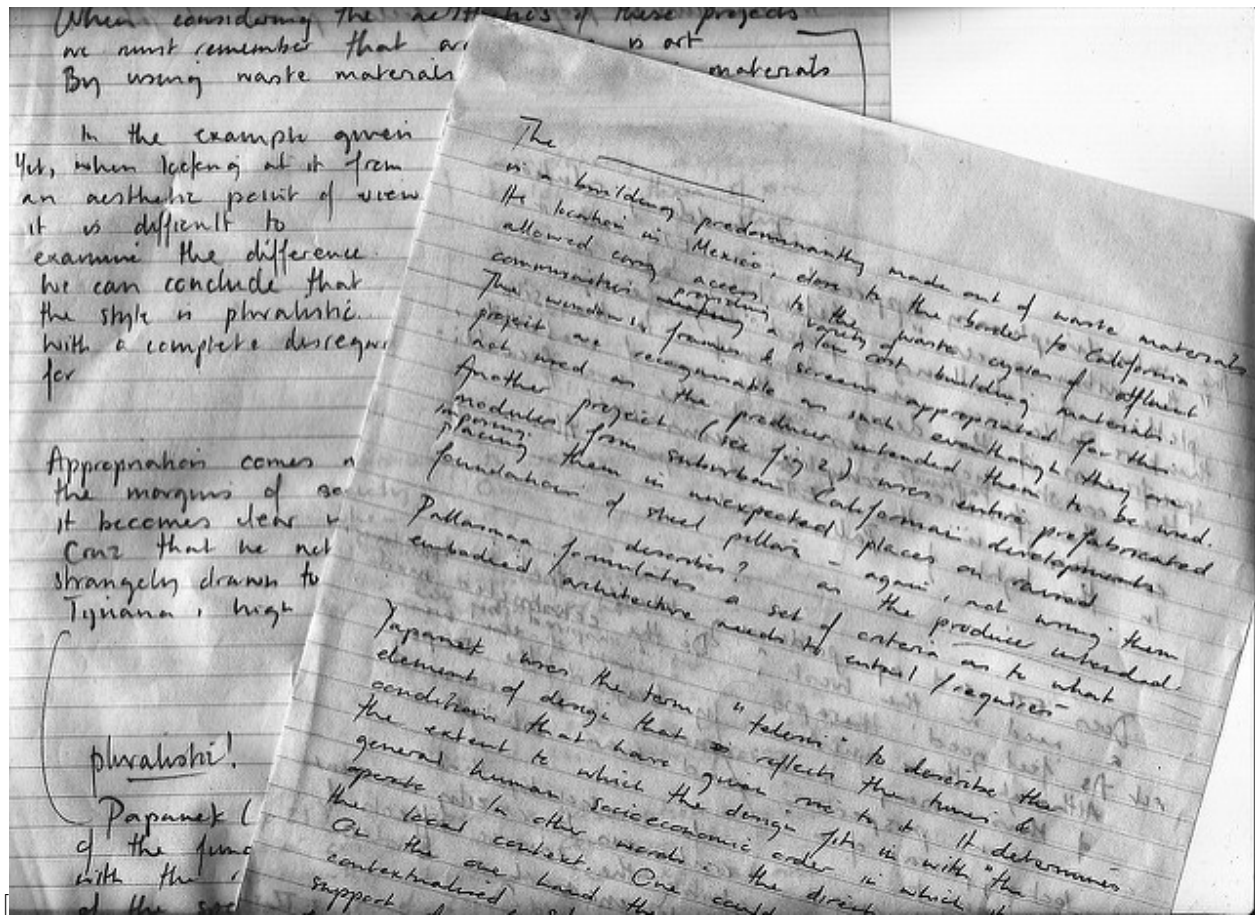 When considering the aesthetics of these projects
we must remember that is art
By using waste materials materials
In the example given
Yet, when looking at it from
an aesthetic point of view
it is difficult to
examine the difference.
we can conclude that
the style is pluralistic.
with a complete
for
Appropriation comes
the margins of
it becomes clear
Cruz that he
strangely drawn to
Tijuana, high
pluralistic!
Papanek (
of the
with the
of the
The
is a building predominantly made out of waste materials
Its location in Mexico, close to the border to California
allowed easy access to the waste cycles of affluent
communities providing a variety of low cost building materials.
The windows, frames & screens appropriated for this
project are recognisable as such eventhough they are
not used as the producer intended them to be used.
Another project (see fig 2) uses entire prefabricated
modules from suburban Californian developments
imposing
placing them in unexpected places on raised
foundations of steel pillars - again, not using them
as the producer intended.
describes?
Pallasmaa formulates a set of criteria as to what
embodied architecture needs to entail / requires
Papanek uses the term "telesis" to describe the
element of design that reflects the times &
conditions that have given rise to it. It determines
the extent to which the design fits in with "the
general human socioeconomic order in which it
operate". In other words: the direct
the local context. One could
On the one hand the
contextualised
support